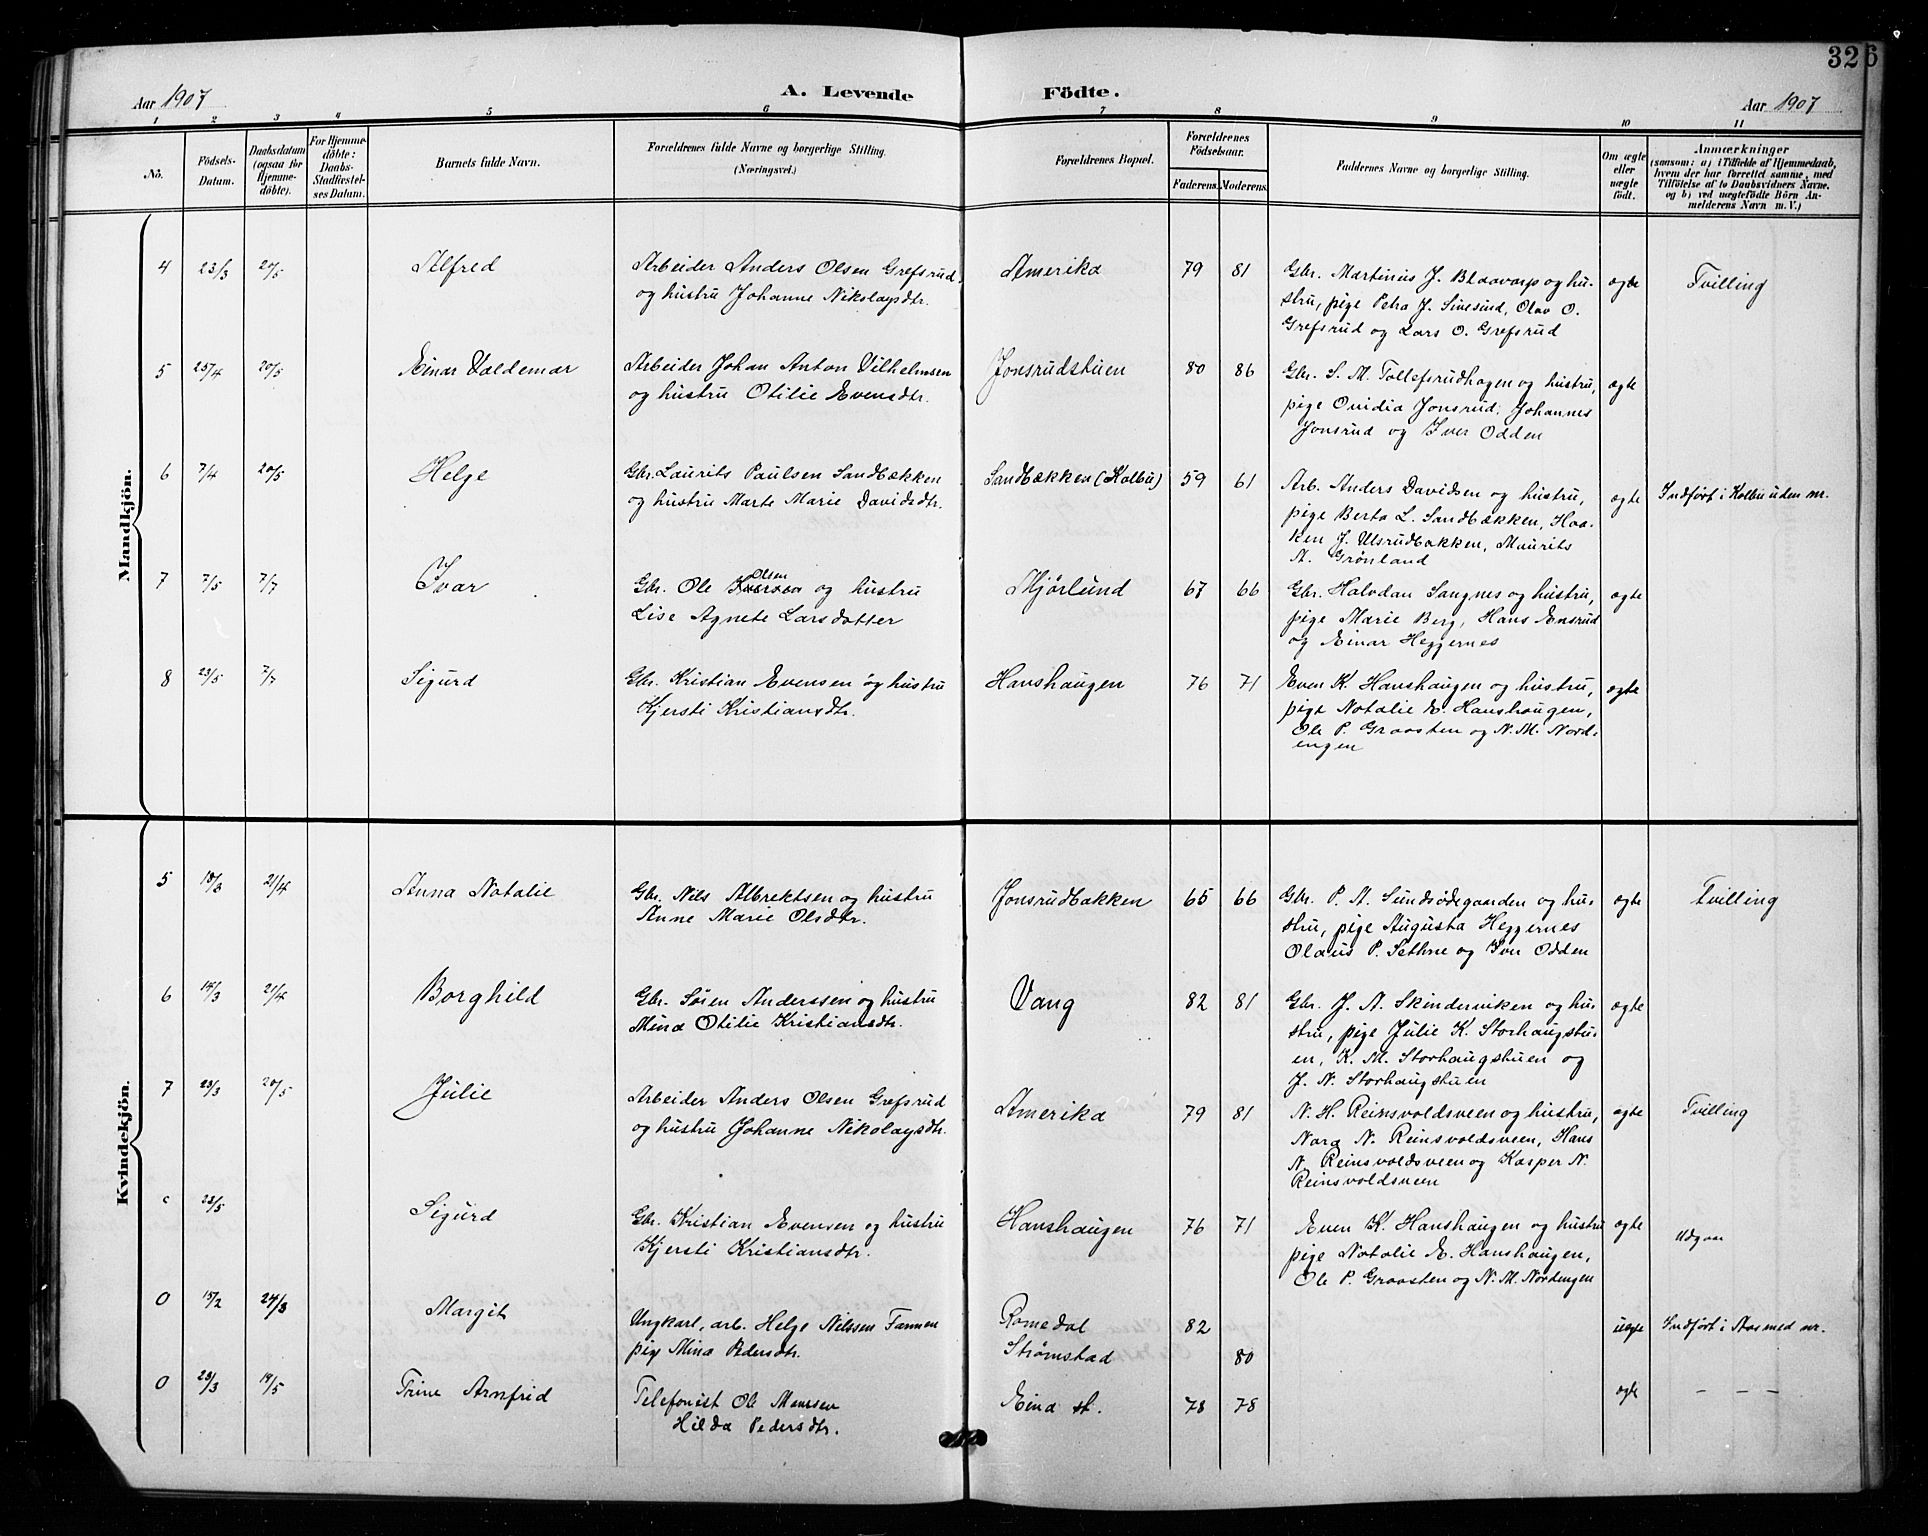 326
Aar 1907
A. Levende
Födte.
Aar 1907
1 2 3 4 5 6 7 8 9 10 11
No.
Födsels-
Datum.
Daabsdatum
(ogsaa for
Hjemme-
döbte).
For Hjemme-
döbte:
Daabs-
Stadfæstel-
ses Datum.
Barnets fulde Navn.
Forældrenes fulde Navne og borgerlige Stilling.
(Næringsvei.)
Forældrenes Bopæl.
Forældrenes
Födselsaar.
Faderens. Moderens.
Faddernes Navne og borgerlige Stilling.
Om ægte
eller
uægte
födt.
Anmærkninger
(saasom: a) i Tilfælde af Hjemmedaab,
hvem der har forrettet samme, med
Tilföielse af to Daabsvidners Navne.
og b) ved uægtefödte Börn An-
melderens Navn m. V.)
Mandkjön.
4 23/3 20/5 Alfred
Arbeider Anders Olsen Grefsrud
og hustru Johanne Nikolaysdtr.
Amerika 79 81
Gbr. Martinius J. Blaavarp og hu-
stru, pige Petra J. Sivesind, Olav O.
Grefsrud og Lars O. Grefsrud
ægte Tvilling
5 25/4 20/5 Einar Valdemar
Arbeider Johan Anton Vilhelmsen
og hustru Otilie Evensdtr.
Jonsrudstuen 80 86
Gbr. S. M. Tollefsrudhagen og hustru,
pige Ovidia Jonsrud, Johannes
Jonsrud og Iver Odden
ægte
6 7/4 20/5 Helge
Gbr. Laurits Paulsen Sandbækken
og hustru Marte Marie Davidsdtr.
Sandbækken (Kolbu) 59 61
Arb. Anders Davidsen og hustru,
pige Berta L. Sandbækken, Haa-
ken J. Ulsrudbakken, Maurits
A. Grønland
ægte Indført i Kolbu uden nr.
7 7/5 7/7 Ivar
Olsen
Gbr. Ole og hustru
Lise Agnete Larsdatter
Mjørlund 67 66
Gbr. Halvdan Sangnes og hustru,
pige Marie Berg, Hans Ensrud
og Einar Heggernes
ægte
8 23/5 7/7 Sigurd
Gbr. Kristian Evensen og hustru
Kjersti Kristiansdtr.
Hanshaugen 76 71
Even K. Hanshaugen og hustru,
pige Natalie E. Hanshaugen,
Ole P. Graasten og N. M. Nord-
engen
ægte
Kvindekjön.
5 18/3 21/4 Anna Natalie
Gbr. Nils Albrektsen og hustru
Anne Marie Olsdtr.
Jonsrudbakken 65 66
Gbr. P. A. Sundsødegaarden og hu-
stru, pige Augusta Heggernes
Olaus P. Sethne og Iver Odden
ægte Tvilling
6 14/3 21/4 Borghild
Gbr. Søren Anderssen og hustru
Mina Otilie Kristiansdtr.
Vang 82 81
Gbr. J. A. Skinderviken og hu-
stru, pige Julie K. Storhaugstu-
en, K. M. Storhaugstuen og
J. N. Storhaugstuen
ægte
7 23/3 20/5 Julie
Arbeider Anders Olsen Grefsrud
og hustru Johanne Nikolaysdtr.
Amerika 79 81
N. H. Reinsvoldsveen og hustru,
Nora N. Reinsvoldsveen, Hans
N. Reinsvoldsveen og Kasper N.
Reinsvoldsveen
ægte Tvilling
23/5 Sigurd
Gbr. Kristian Evensen og hustru
Kjersti Kristiansdtr.
Hanshaugen 76 71
Even K. Hanshaugen og hustru
pige Natalie E. Hanshaugen,
Ole P. Graasten og N. M. Nordengen
ægte Udgaar
0 15/2 24/3 Margit
Ungkarl, arb. Helge Nilssen Tannen
pige Mina Pedersdtr.
Romedal 82
Strømstad 80
uegte Indført i Aas med nr.
0 23/3 19/5 Trine Arnfrid
Telefonist Ole
Hilda Pedersdtr.
Eina st. 78 78
ægte – – –